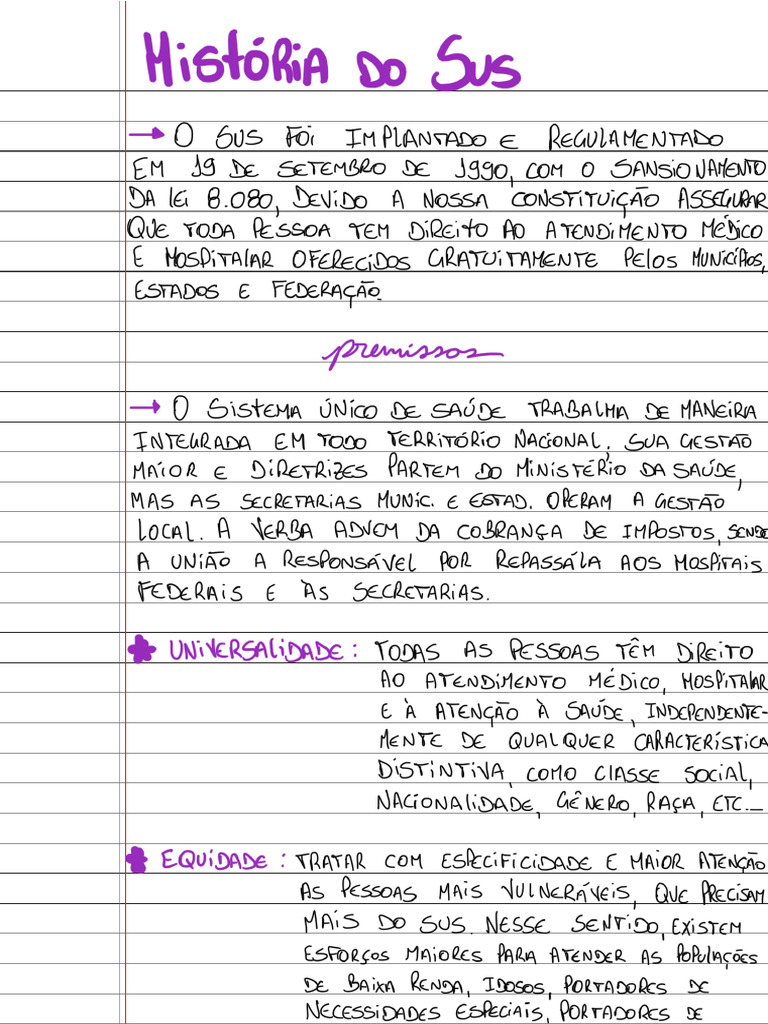 História do Sus
→ O SUS FOI IMPLANTADO E REGULAMENTADO
EM 19 DE SETEMBRO DE 1990, COM O SANSIONAMENTO
DA LEI 8.080, DEVIDO A NOSSA CONSTITUIÇÃO ASSEGURAR
QUE TODA PESSOA TEM DIREITO AO ATENDIMENTO MÉDICO
E HOSPITALAR OFERECIDOS GRATUITAMENTE PELOS MUNICÍPIOS,
ESTADOS E FEDERAÇÃO.
premissas
→ O SISTEMA ÚNICO DE SAÚDE TRABALHA DE MANEIRA
INTEGRADA EM TODO TERRITÓRIO NACIONAL, SUA GESTÃO
MAIOR E DIRETRIZES PARTEM DO MINISTÉRIO DA SAÚDE,
MAS AS SECRETARIAS MUNIC. E ESTAD. OPERAM A GESTÃO
LOCAL. A VERBA ADVEM DA COBRANÇA DE IMPOSTOS, SENDO
A UNIÃO A RESPONSÁVEL POR REPASSÁLA AOS HOSPITAIS
FEDERAIS E ÀS SECRETARIAS.
UNIVERSALIDADE: TODAS AS PESSOAS TÊM DIREITO
AO ATENDIMENTO MÉDICO, HOSPITALAR
E À ATENÇÃO À SAÚDE, INDEPENDENTE-
MENTE DE QUALQUER CARACTERÍSTICA
DISTINTIVA, COMO CLASSE SOCIAL,
NACIONALIDADE, GÊNERO, RAÇA, ETC...
EQUIDADE: TRATAR COM ESPECIFICIDADE E MAIOR ATENÇÃO
AS PESSOAS MAIS VULNERÁVEIS, QUE PRECISAM
MAIS DO SUS. NESSE SENTIDO, EXISTEM
ESFORÇOS MAIORES PARA ATENDER AS POPULAÇÕES
DE BAIXA RENDA, IDOSOS, PORTADORES DE
NECESSIDADES ESPECIAIS, PORTADORES DE